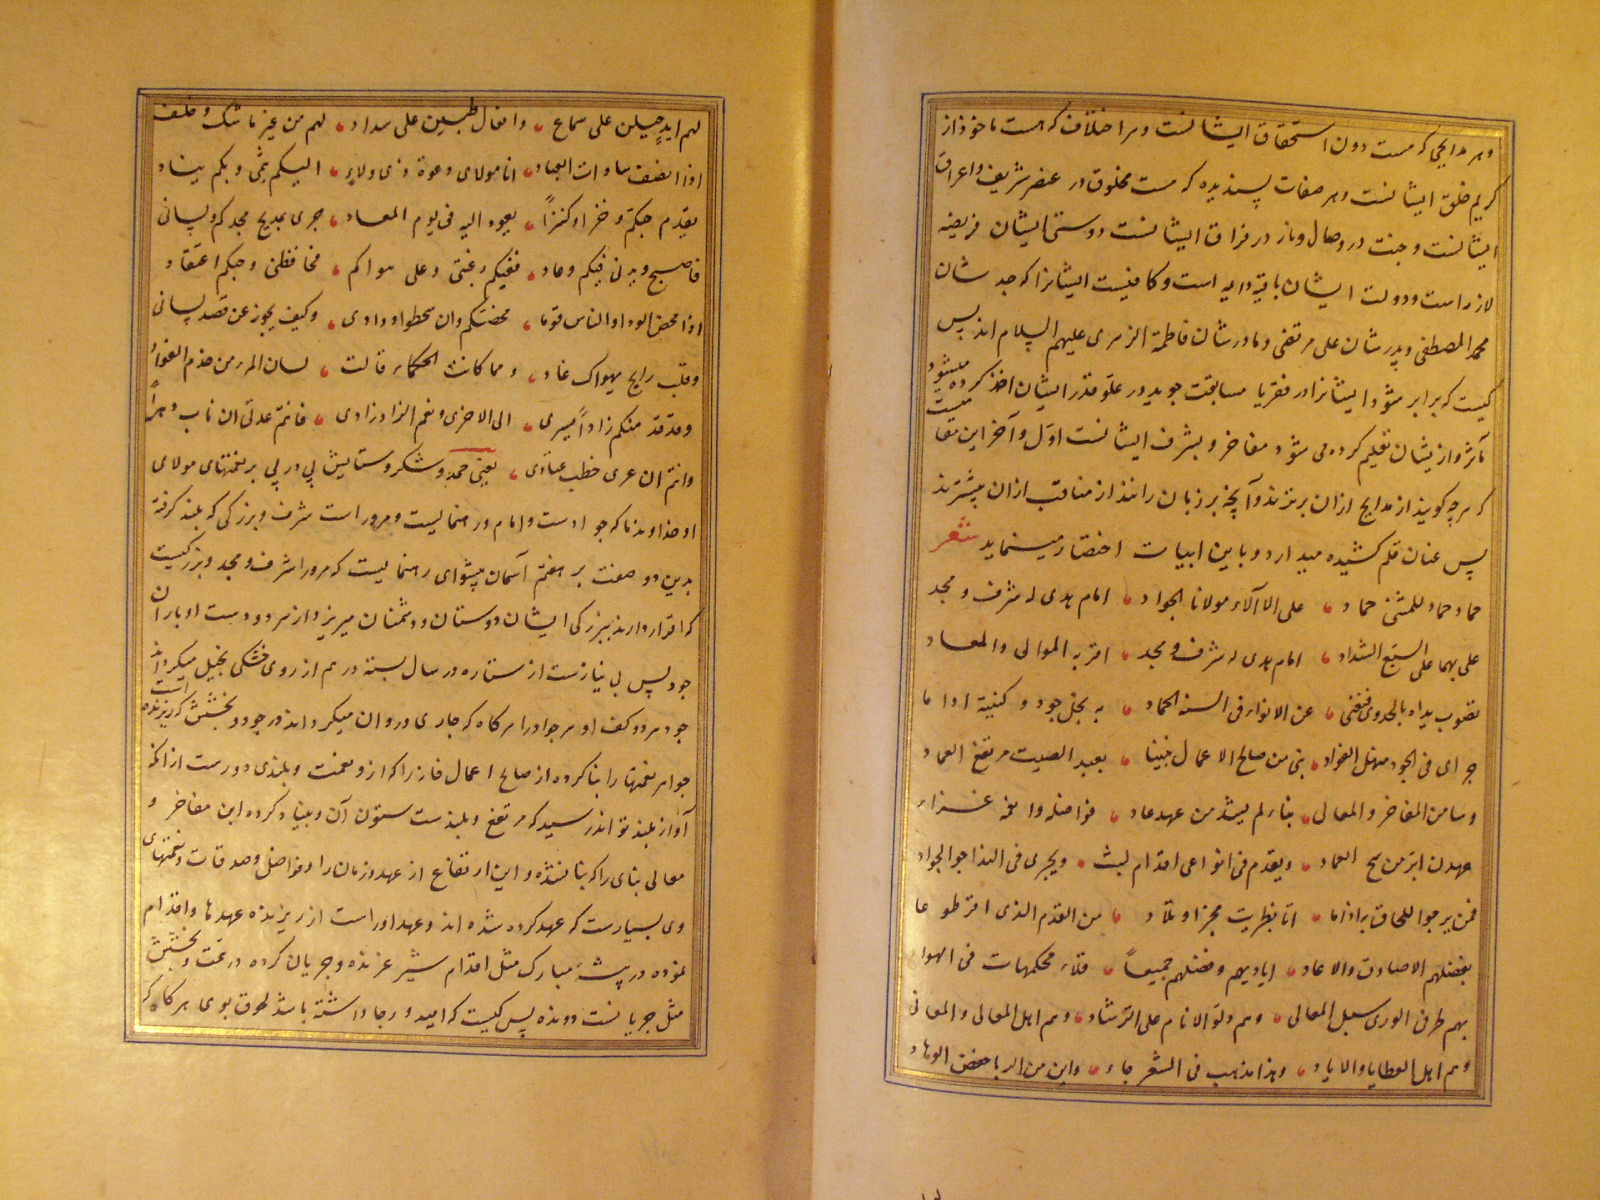 و هر مدایحی که هست دون استحقاق ایشانست و هر اخلاق که هست ماخوذ از
کریم خلق ایشانست و هر صفات پسندیده که هست مخلوق در عنصر شریف و اعراق
ایشانست و جنت در وصال و نار در فراق ایشانست دوستی ایشان فریضه
لازمه است و دولت ایشان باقیه دایمه است و کافیست ایشانرا که جد شان
محمد المصطفی و پدرشان علی مرتضی و مادرشان فاطمة الزهری علیهم السلام اند پس
کیست که برابر شود ایشانرا در فقر یا مسابقت جوید در علو قدر ایشان اخذ کرده میشود
مآثر و از یشان تعلیم کرده می شود مفاخر و بشرف ایشانست اول و آخر این
که هرچه کویند از مدایح ازان برترند و آنچه بر زبان رانند از مناقب ازان بیشترند
پس عنان قلم کشیده میدارد و باین ابیات اختصار مینماید شعر
حماد حماد للمثنی حماد علی الآلاء مولانا الجواد امام هدی له شرف و مجد
علی بهما علی السبع الشداد امام هدی له شرف و مجد اقر به الموالی والمعاد
تصوب یداه بالجدوی فتغنی عن الانواء فی السنة الجماد یبخل جود و کفیه اذا ما
جری فی الجود منهل الغواد بنی من صالح الاعمال بیتا بعید الصیت مرتفع العماد
و سا من المفاخر و المعالی بناء لم یشد من عهد عاد فواضله و انعمه غزار
عهدن ابر من سح العماد و یقدم فی الوغی اقدام لیث و یجری فی الندا جوالجواد
فمن یرجوا للحاق به اذا ما اتا بطریف مجد او تلاد من القدم الذی افرطو عا
بفضلهم الاصادق والاعاد ایادیهم و فضلهم جمیعا قلاء محکمات فی الهواد
بهم عرف الوری سبل المعالی و هم دلو الانام علی الرشاد و هم اهل المعالی و المعانی
و هم اهل العطایا والایاد و هذا مذهب فی الشعر جار و این من الربا خفض الوهاد
لهم ایدٍ جبلن علی سماح و افعال طبعن علی سداد لهم من غیر ما شک و خلف
اذا انصف سادات العباد انا مولای دعوة ذی ولاء الیکم ینتمی و بکم ینادی
یقدم حبکم ذخرا و کنزاً یعود الیه فی یوم المعاد جری بمدیح مجدکم لسانی
فاصبح دیدنی فیکم و عاد ففیکم رغبتی و علی هواکم محافظتی و حبکم اعتقاد
اذا محض الوداد الناس قوما محضتکم وان سخطوا ودادی و کیف یجوز عن قصد لسانی
و قلب رایح بهواک غاد و مما کانت الحکماء قالت لسان المرء من خدم الفواد
و قد قدمت منکم زاداً لمسیری الی الاخری و نعم الزاد زادی فانتم عدتی ان ناب دهراً
وانتم ان عری خطب عتادی یعنی حمد و شکر و ستایش پی در پی بر نعمتهای مولای
او خداوند ما که جواد است و امام و رهنمائیست و مرور است شرف و بزرکی که بلند کرفته
بدین دو صفت بر هفتم آسمان پیشوای رهنمائیست که مرورا شرف و مجد و بزرکیست
که اقرار دارند ببزرکی ایشان دوستان و دشمنان میریزد از هر دو دست او باران
جود پس بی نیازست از ستاره در سال بسته درهم از روی خشکی بخیل میکرداند
جود هر دو کف او هر جواد را هرکاه که جاری و روان میکرداند در جود و بخشش که ریزنده است
جواهر نعمتها را بنا کرده از صالح اعمال خانه را که از و نعمت و بلندی دورست ازانکه
آواز بلند تواند رسید که مرتفع و بلندست ستون آن و بنیاد کرده این مفاخر و
معالی بنای را که بنا نشده و این ارتفاع از عهد و زمان را و فواضل و صدقات و نعمتهای
وی بسیارست که عهد کرده شده اند و عهد اوراست از ریزنده عهدها و اقدام
نموده در بیشه مبارک مثل اقدام شیر غرنده و جریان کرده در نعمت و بخشش
مثل جریانست دونده پس کیست که امید و رجا داشته باشد لحوق بوی هرکاه که